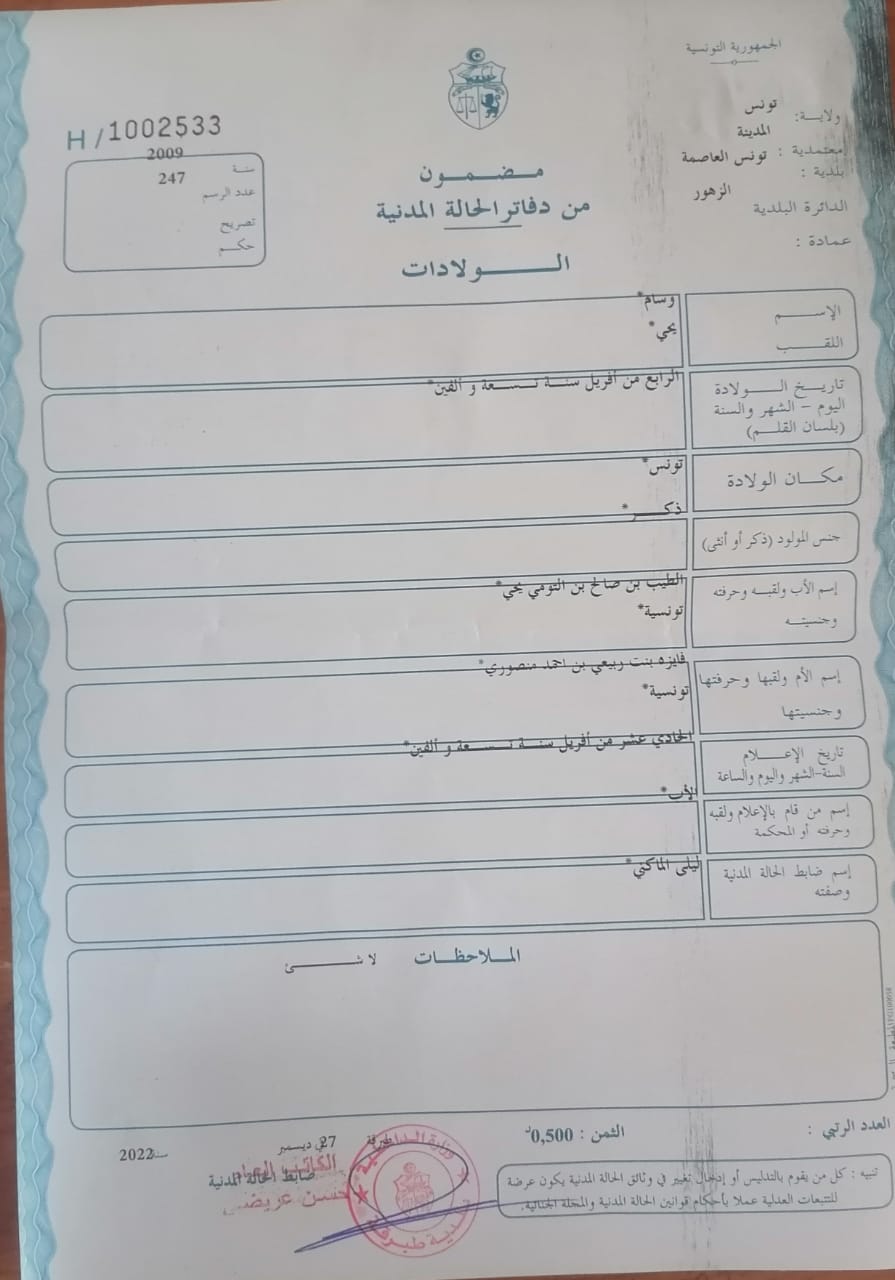 الجمهورية التونسية
ولاية: تونس
المدينة
معتمدية :
بلدية : تونس العاصمة
الدائرة البلدية الزهور
عمادة :
H/1002533
سنة 2009
عدد الرسم 247
تصريح
حكم
مضمون
من دفاتر الحالة المدنية
الولادات
الإسم وسام*
اللقب يحي*
تاريخ الولادة الرابع من أفريل سنة تسعة و ألفين*
اليوم - الشهر والسنة
(بلسان القلم)
مكان الولادة تونس*
جنس المولود (ذكر أو أنثى) ذكر*
إسم الأب ولقبه وحرفته الطيب بن صالح بن التومي يحي*
وجنسيته تونسية*
إسم الأم ولقبها وحرفتها فايزه بنت ربيعي بن احمد منصوري*
وجنسيتها تونسية*
تاريخ الإعلام الحادي عشر من أفريل سنة تسعة و ألفين*
السنة-الشهر واليوم والساعة
إسم من قام بالإعلام ولقبه الأب*
وحرفته أو المحكمة
إسم ضابط الحالة المدنية ليلى الماكني*
وصفته
الملاحظات لا شئ
العدد الرتبي :
الثمن : 0,500د
طبرقة في 27 ديسمبر سنة 2022
ضابط الحالة المدنية
الكاتب العام
حسن عريضي
وزارة الداخلية
بلدية طبرقة
تنبيه : كل من يقوم بالتدليس أو إدخال تغيير في وثائق الحالة المدنية يكون عرضة
للتتبعات العدلية عملا بأحكام قوانين الحالة المدنية والمجلة الجنائية.